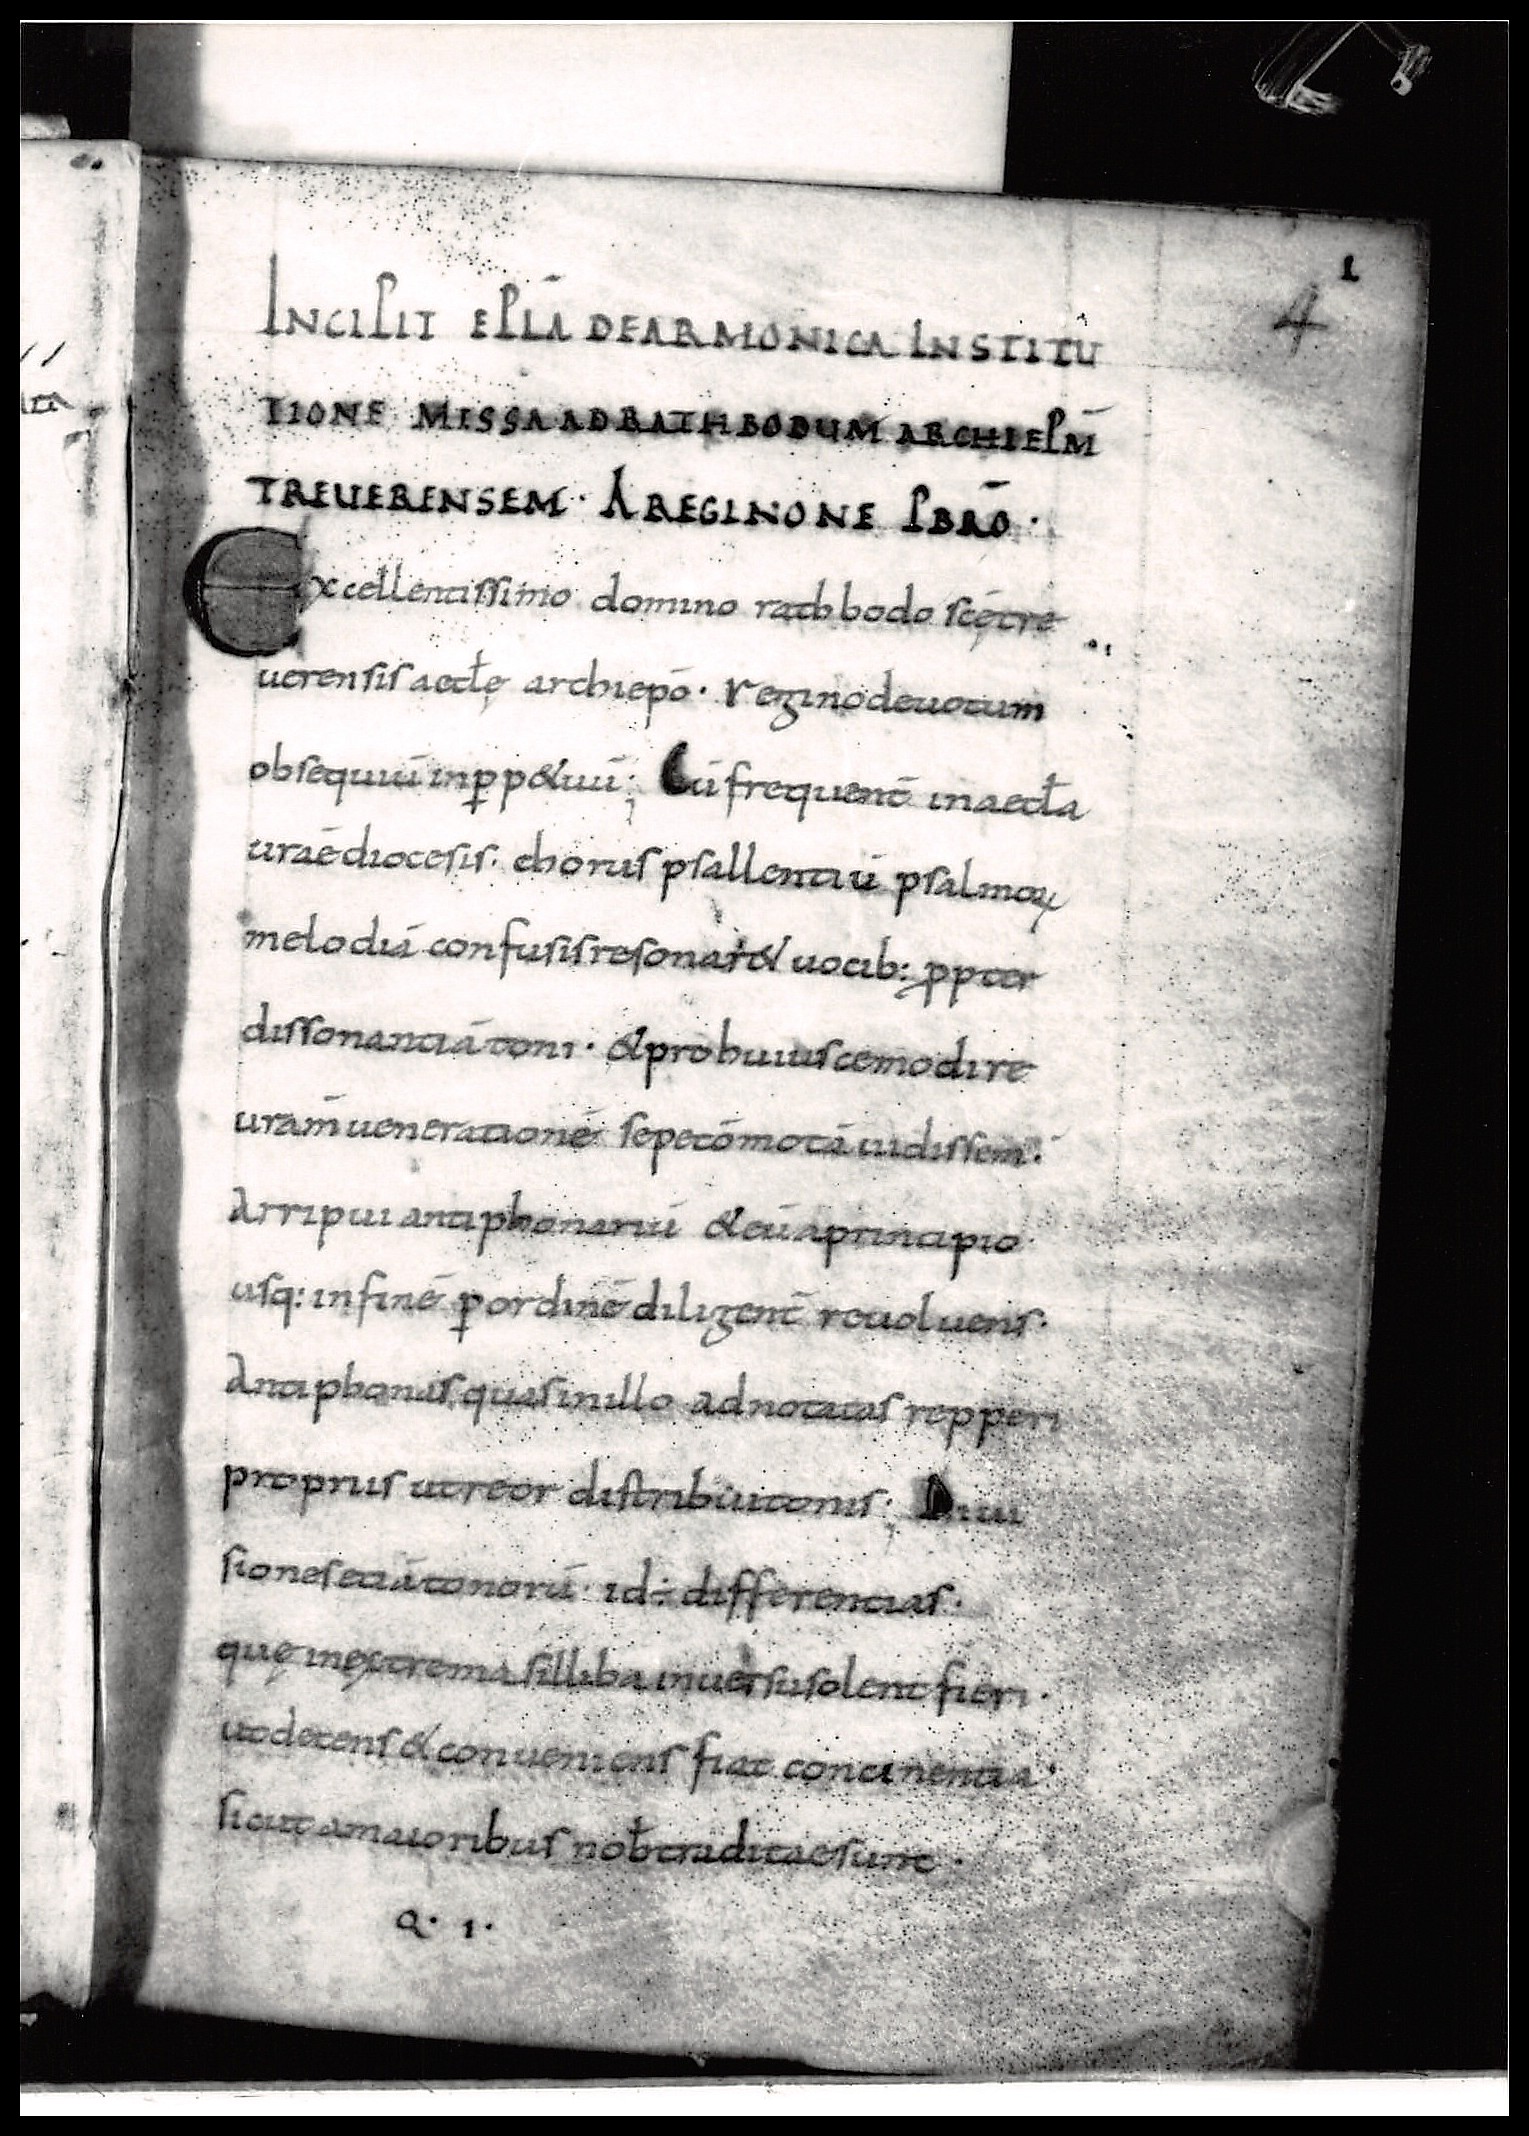 1
4
INCIPIT EPLĀ DE ARMONICA INSTITU
TIONE MISSA AD RATHBODUM ARCHIEPM̄
TREUERENSEM · A REGINONE PBRŌ ·
Excellentissimo domino rathbodo scę tre
uerensis aeclę archiepō · regino deuotum
obsequiū in ꝑp&uū ; Cū frequent̄ in aecła
uraē diocesis · chorus psallentiū psalmoꝝ
melodiā confusis resonar& uocib: ꝓpter
dissonantiā toni · & pro huiuscemodi re
uram̄ uenerationē sepe cōmotā uidissem ·
Arripui antiphonariū & eū a principio
usq: in finē ꝑ ordinē diligent̄ reuoluens ·
Antiphonas, quas in illo adnotatas repperi
propriis ut reor distribui tonis ; Diui
siones etiā tonorū · id ÷ differentias ·
quę in extrema silliba in uersu solent fieri ·
ut decens & conueniens fiat concinentia ·
sicut a maioribus nob̄ traditae sunt ·
Q · I ·